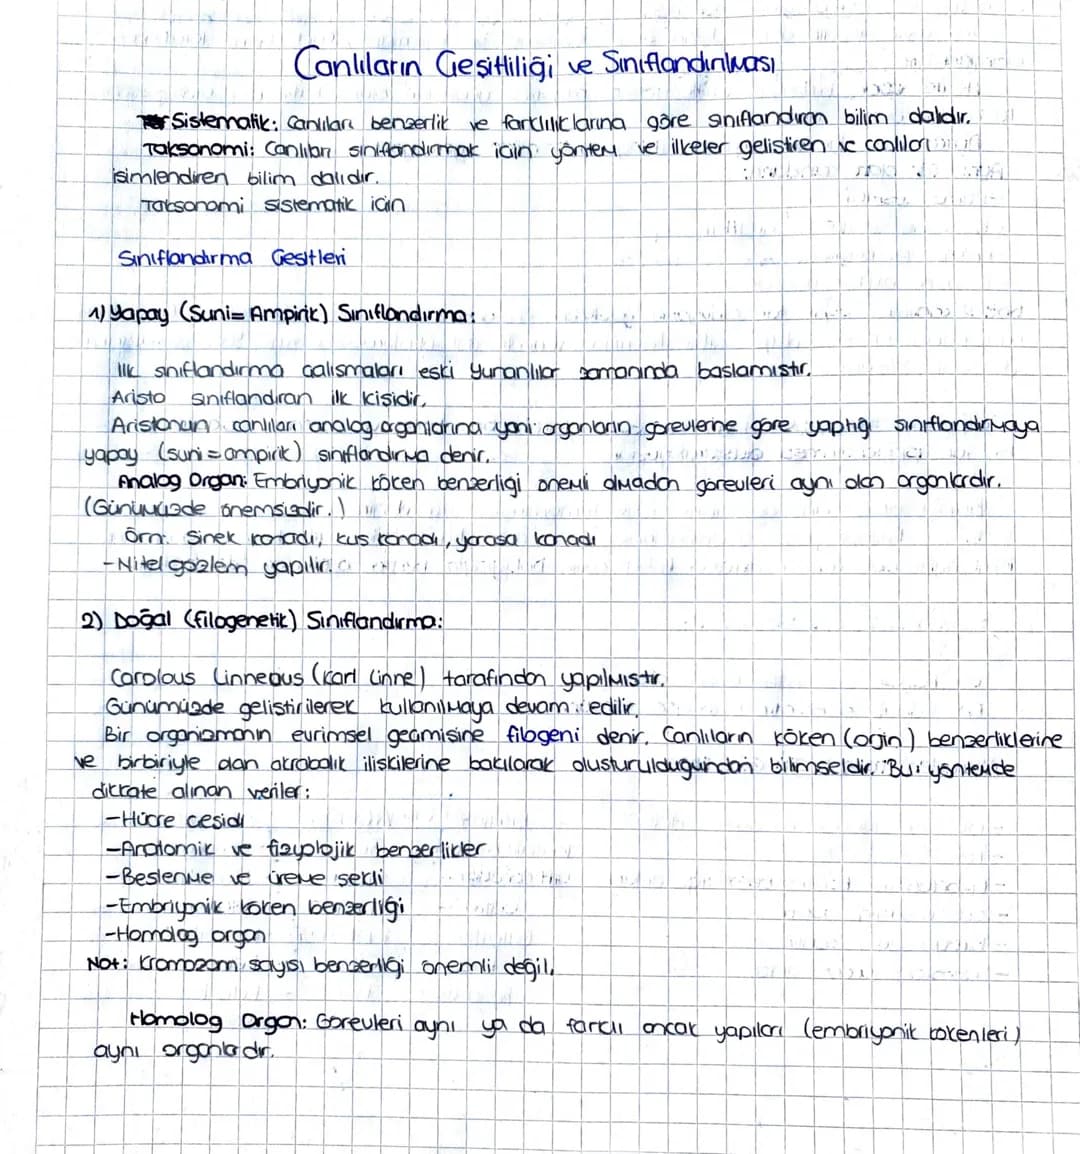 Canlıların Çeşitliliği ve Sınıflandırılması
Sistematik: Canlıları benzerlik ve farklılıklarına göre sınıflandıran bilim dalıdır.
Taksonomi: Canlıları sınıflandırmak icin yöntem ve ilkeler gelistiren ve canlıları
isimlendiren bilim dalıdır.
Taksonomi sistematik icin
Sınıflandırma Cesitleri
1) Yapay (Suni= Ampirik) Sınıflandırma:
İlk sınıflandırma calısmaları eski Yunanlılar zamanında baslamıstır.
Aristo sınıflandıran ilk kisidir.
Aristonun canlıları analog organlarına yani organların görevlerine göre yaptığı sınıflandırmaya
yapay (suni=ampirik) sınıflandırma denir.
Analog Organ: Embriyonik köken benzerligi onemli olmadan görevleri aynı olan organlardır.
(Günümüzde onemsizdir.)
Örn: Sinek kanadı, kus kanadı, yarasa kanadı
-Nitel gözlem yapılır.
2) Doğal (filogenetik) Sınıflandırma:
Carolous Linneous (Karl Linne) tarafından yapılmıstır.
Günümüzde gelistirilerek kullanılmaya devam edilir.
Bir organizmanın evrimsel gecmisine filogeni denir. Canlıların köken (orjin) benzerliklerine
ve birbiriyle olan akrabalık iliskilerine bakılarak olusturuldugundan bilimseldir. Bu yöntemde
dikkate alınan veriler:
-Hücre cesidi
-Anatomik ve fizyolojik benzerlikler
-Beslenme ve üreme sekli
-Embriyonik koken benzerliği
-Homolog organ
Not: Kromozom sayısı benzerliği onemli değil.
Homolog Organ: Gorevleri aynı ya da farklı ancak yapıları (embriyonik kokenleri)
aynı organlardır.